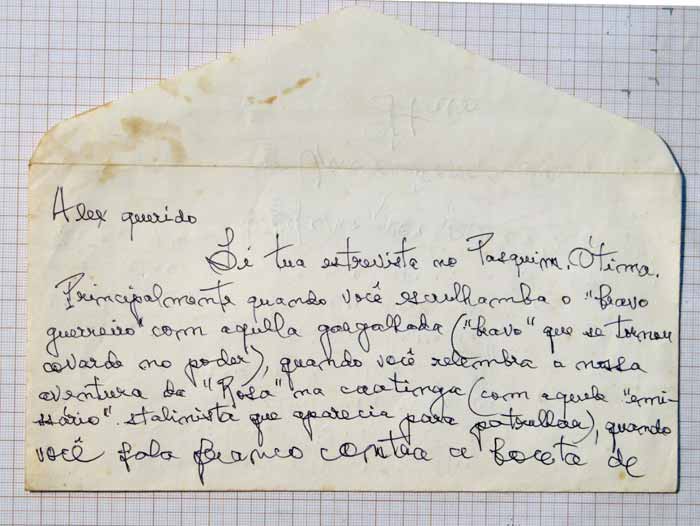 Alex querido
Li tua entrevista no Pasquim. Ótima.
Principalmente quando você esculhamba o "bravo
guerreiro" com aquella gargalhada ("bravo" que se tornou
covarde no poder), quando você relembra a nossa
aventura da "Rosa" na caatinga (com aquele "emi-
ssário" stalinista que aparecia para patrulhar), quando
você fala franco contra a boceta de